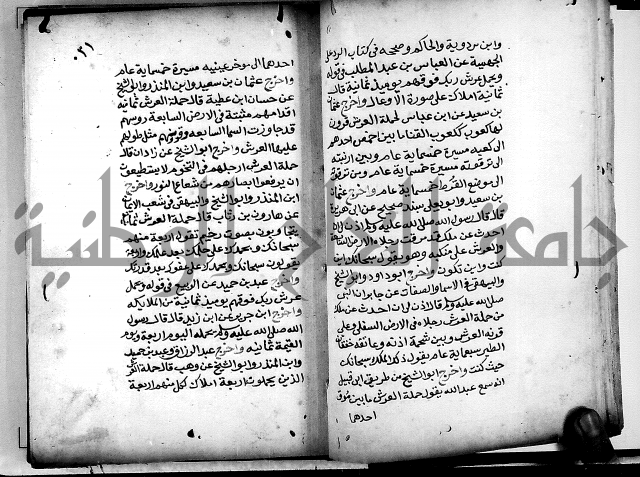 وابن مردوية والحاكم وصححه في كتاب الرد على
الجهمية عن العباس بن عبد المطلب في قوله
ويحمل عرش ربك فوقهم يوميذ ثمانية قال
ثمانية املاك على صورة الاوعال واخرج عثمان
بن سعيد عن ابن عباس لحملة العرش قرون
لها كعوب ككعوب القنا ما بين اخمص احدهم
الى كعبه مسيرة خمسماية عام وبين ارنبته
الى ترقوته مسيرة خمسماية عام وبين ترقوته
الى موضع القرط خمسماية عام واخرج عثمان
بن سعيد وابو يعلى بسند صحيح عن ابي هريرة
قال قال رسول الله صلى الله عليه وسلم اذن لي ان
احدث عن ملك قد مرقت رجلاه الارض السابعة
والعرش على منكبه وهو يقول سبحانك اين
كنت واين تكون واخرج ابو داود وابو الشيخ
والبيهقي في الاسماء والصفات عن جابر ان النبي
صلى الله عليه وسلم قال اذن لي ان احدث عن ملك
من حملة العرش رجلاه في الارض السفلى وعلى
قرنه العرش وبين شحمة اذنه وعاتقه خفقان
الطير سبعماية عام يقول ذلك الملك سبحانك
حيث كنت واخرج ابو الشيخ من طريق ابي قبيل
انه سمع عبد الله يقول حملة العرش ما بين موق
احدهما
٠٣١
احدهما الى موخر عينيه مسيرة خمسماية عام
واخرج عثمان بن سعيد وابن المنذر وابو الشيخ
عن حسان ابن عطية قال حملة العرش ثمانية
اقدامهم مثبتة في الارض السابعة وروسهم
قد جاوزت السما السابعه وقرونهم مثل طولهم
عليها العرش واخرج ابو الشيخ عن زاذان قال
حملة العرش ارجلهم في التخوم لا يستطيعون
ان يرفعوا ابصارهم من شعاع النور واخرج
ابن المنذر وابو الشيخ والبيهقي في شعب الايمان
عن هارون بن رئاب قال حملة العرش ثمانية
يتجاوبون بصوت رخيم تقول اربعة منهم
سبحانك وبحمدك على حلمك بعد علمك واربعة
يقولون سبحانك وبحمدك على عفوك بعد قدرتك
واخرج عبد بن حميد عن الربيع في قوله ويحمل
عرش ربك فوقهم يوميذ ثمانية من الملايكة
واخرج ابن جرير عن ابن زيد قال قال رسول
الله صلى الله عليه وسلم يحمله اليوم اربعة ويوم
القيمة ثمانيه واخرج عبد الرزاق وعبد بن حميد
وابن المنذر وابو الشيخ عن وهب قال حملة العرش
الذين يحملونه اربعة املاك لكل منهم اربعة